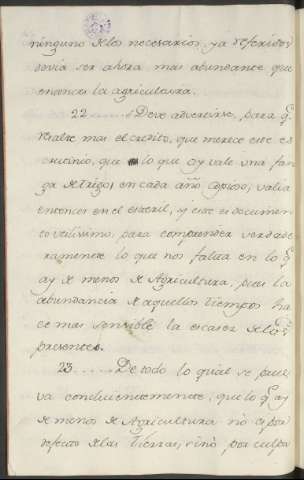 ninguno de los necesarios, ya referidos
devia ser ahora mas abundante que
entonces la agricultura.
22......Deve advertirse, para q.
resalte mas el credito, que merece este es
crutinio, que lo que oy vale una fan
ga de trigo, en cada año copioso, valia
entonces en el esteril, y este es documen
to utilissimo, para comprender verdade
ramente lo que nos falta en lo q.
ay de menos de Agricultura, pues la
abundancia de aquellos tiempos ha
ce mas sensible la escasez de los
presentes.
23......De todo lo qual se prue
va concluientemente, que lo q. ay
de menos de Agricultura no es por
defecto de las tierras, sino por culpa